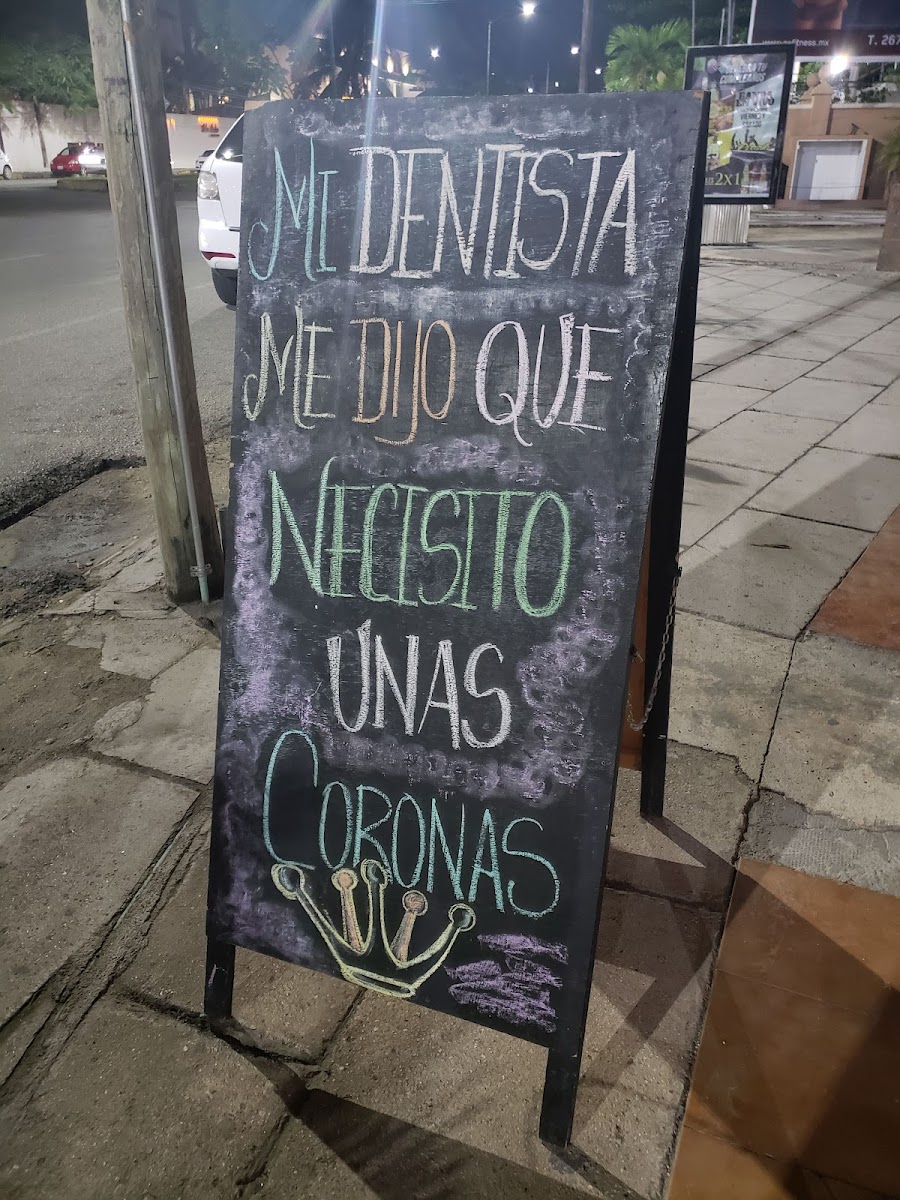 MI DENTISTA
ME DIJO QUE
NECISITO
UNAS
CORONAS
T. 267
2x1